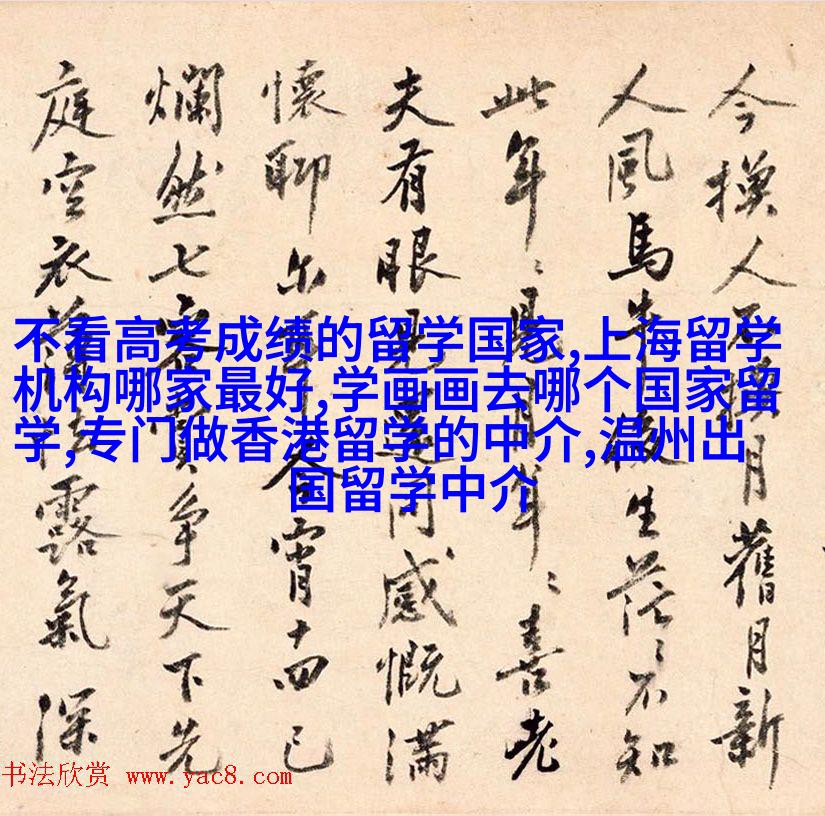 今換人不換月舊月新
人風馬牛微生茫々不知
此年々月年々喜老
夫有眼見還同感慨滿
懷聊尔今宵十四已
爛然七客爭天下先
庭空衣薄露氣深
不看高考成绩的留学国家,上海留学
机构哪家最好,学画画去哪个国家留
学,专门做香港留学的中介,温州出
国留学中介
书法欣赏 www.yac8.com